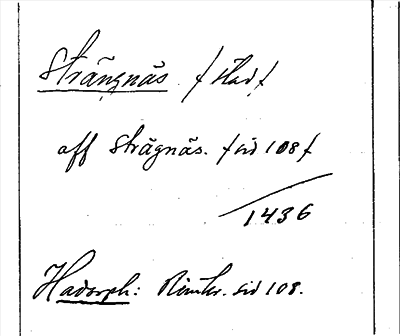 Strängnäs / stad /
aff Strägnäs. / sid 108 /
1436
Hadorph: Rimkr. sid 108.